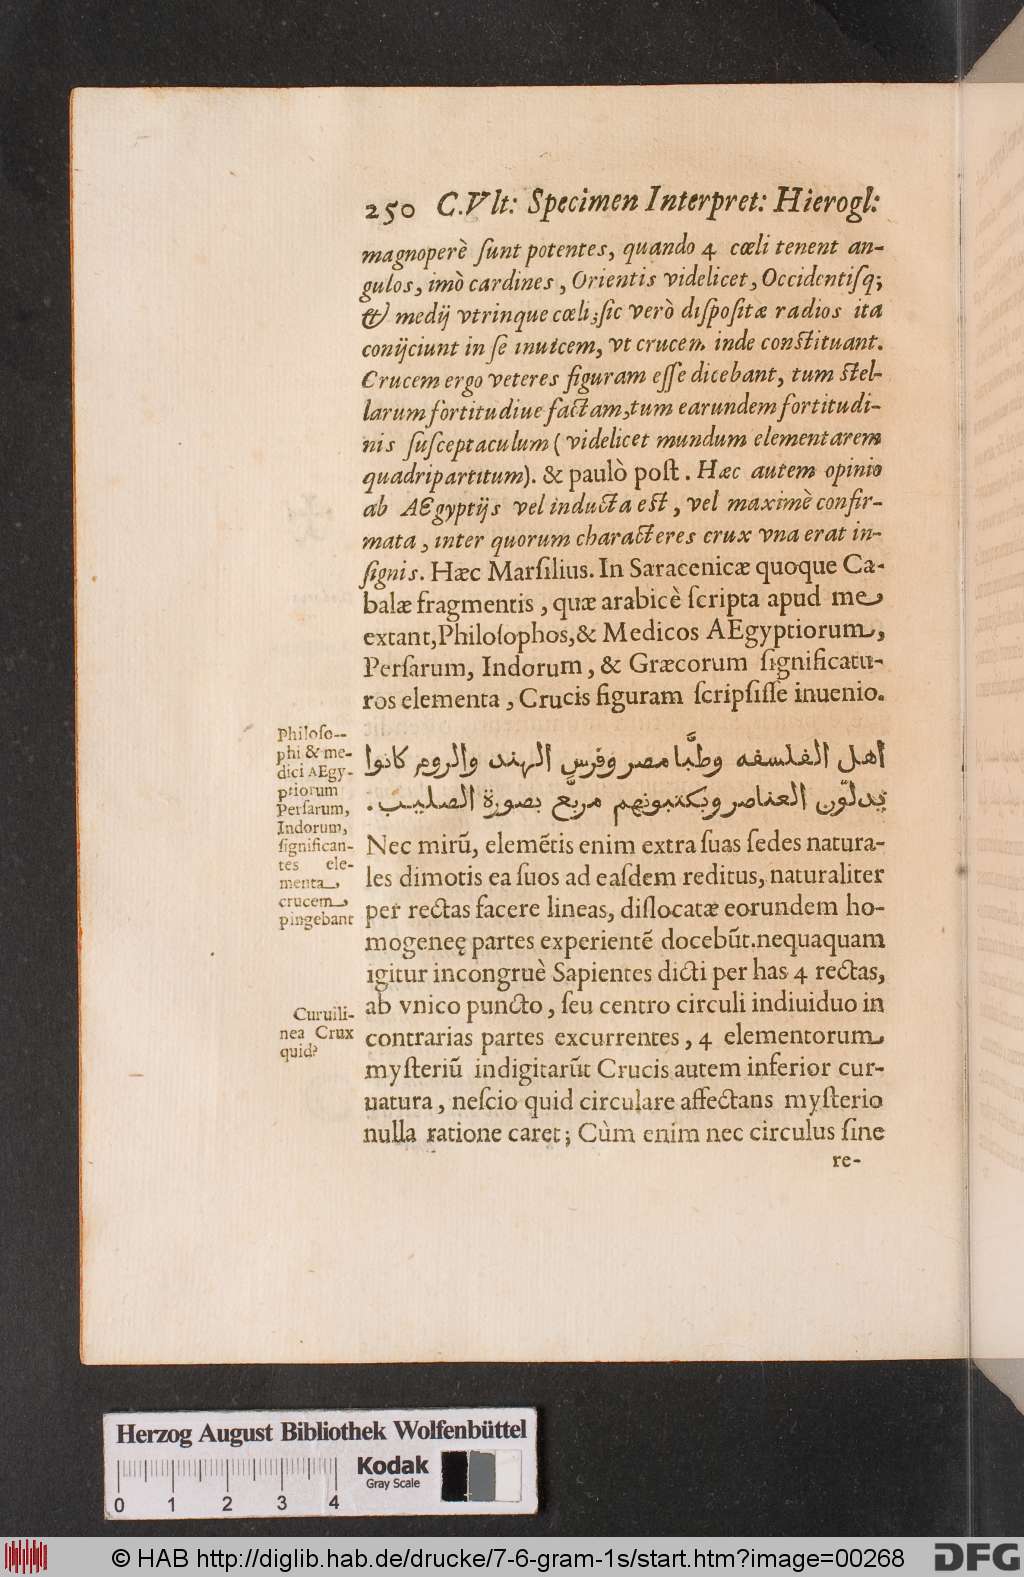 250 C.Vlt: Specimen Interpret: Hierogl:
magnoperè ſunt potentes, quando 4 cœli tenent an-
gulos, imò cardines, Orientis videlicet, Occidentiſq;
& medij vtrinque cœli; ſic verò diſpoſitæ radios ita
conijciunt in ſe inuicem, vt crucem inde conſtituant.
Crucem ergo veteres figuram eſſe dicebant, tum ſtel-
larum fortitudiue factam, tum earundem fortitudi-
nis ſuſceptaculum (videlicet mundum elementarem
quadripartitum). & paulò poſt. Hæc autem opinio
ab AEgyptijs vel inducta eſt, vel maximè confir-
mata, inter quorum characteres crux vna erat in-
ſignis. Hæc Marſilius. In Saracenicæ quoque Ca-
balæ fragmentis, quæ arabicè ſcripta apud me
extant, Philoſophos, & Medicos AEgyptiorum,
Perſarum, Indorum, & Græcorum ſignificatu-
ros elementa, Crucis figuram ſcripſiſſe inuenio.
اهل الفلسفه وطبَّا مصر وفرس الهند والروم كانوا
يدلوّن العناصر ويكتبونهم مربّع بصورة الصليب.
Nec mirū, elemētis enim extra ſuas ſedes natura-
les dimotis ea ſuos ad eaſdem reditus, naturaliter
per rectas facere lineas, diſlocatæ eorundem ho-
mogeneę partes experientē docebūt. nequaquam
igitur incongruè Sapientes dicti per has 4 rectas,
ab vnico puncto, ſeu centro circuli indiuiduo in
contrarias partes excurrentes, 4 elementorum
myſteriū indigitarūt Crucis autem inferior cur-
uatura, neſcio quid circulare affectans myſterio
nulla ratione caret; Cùm enim nec circulus ſine
re-
Philoſo--
phi & me-
dici AEgy-
ptiorum
Perſarum,
Indorum,
ſignifican-
tes ele-
menta,
crucem
pingebant
Curuili-
nea Crux
quid?
Herzog August Bibliothek Wolfenbüttel
Kodak
Gray Scale
0 1 2 3 4
© HAB http://diglib.hab.de/drucke/7-6-gram-1s/start.htm?image=00268
DFG